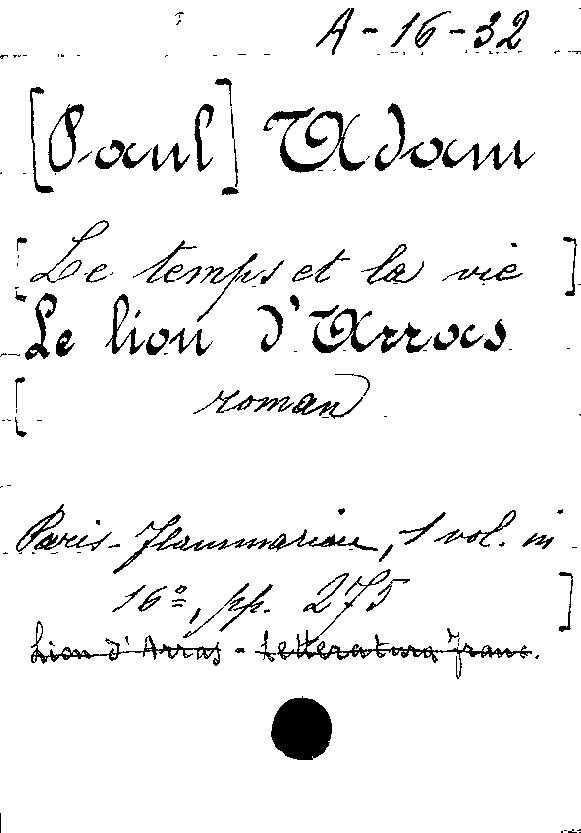 A-16-32
[Paul] Adam
[Le temps et la vie]
Le lion d'Arras
[roman
Paris-Flammarion, 1 vol. in
16º, pp. 275]
Lion d'Arras - Letteratura franc.